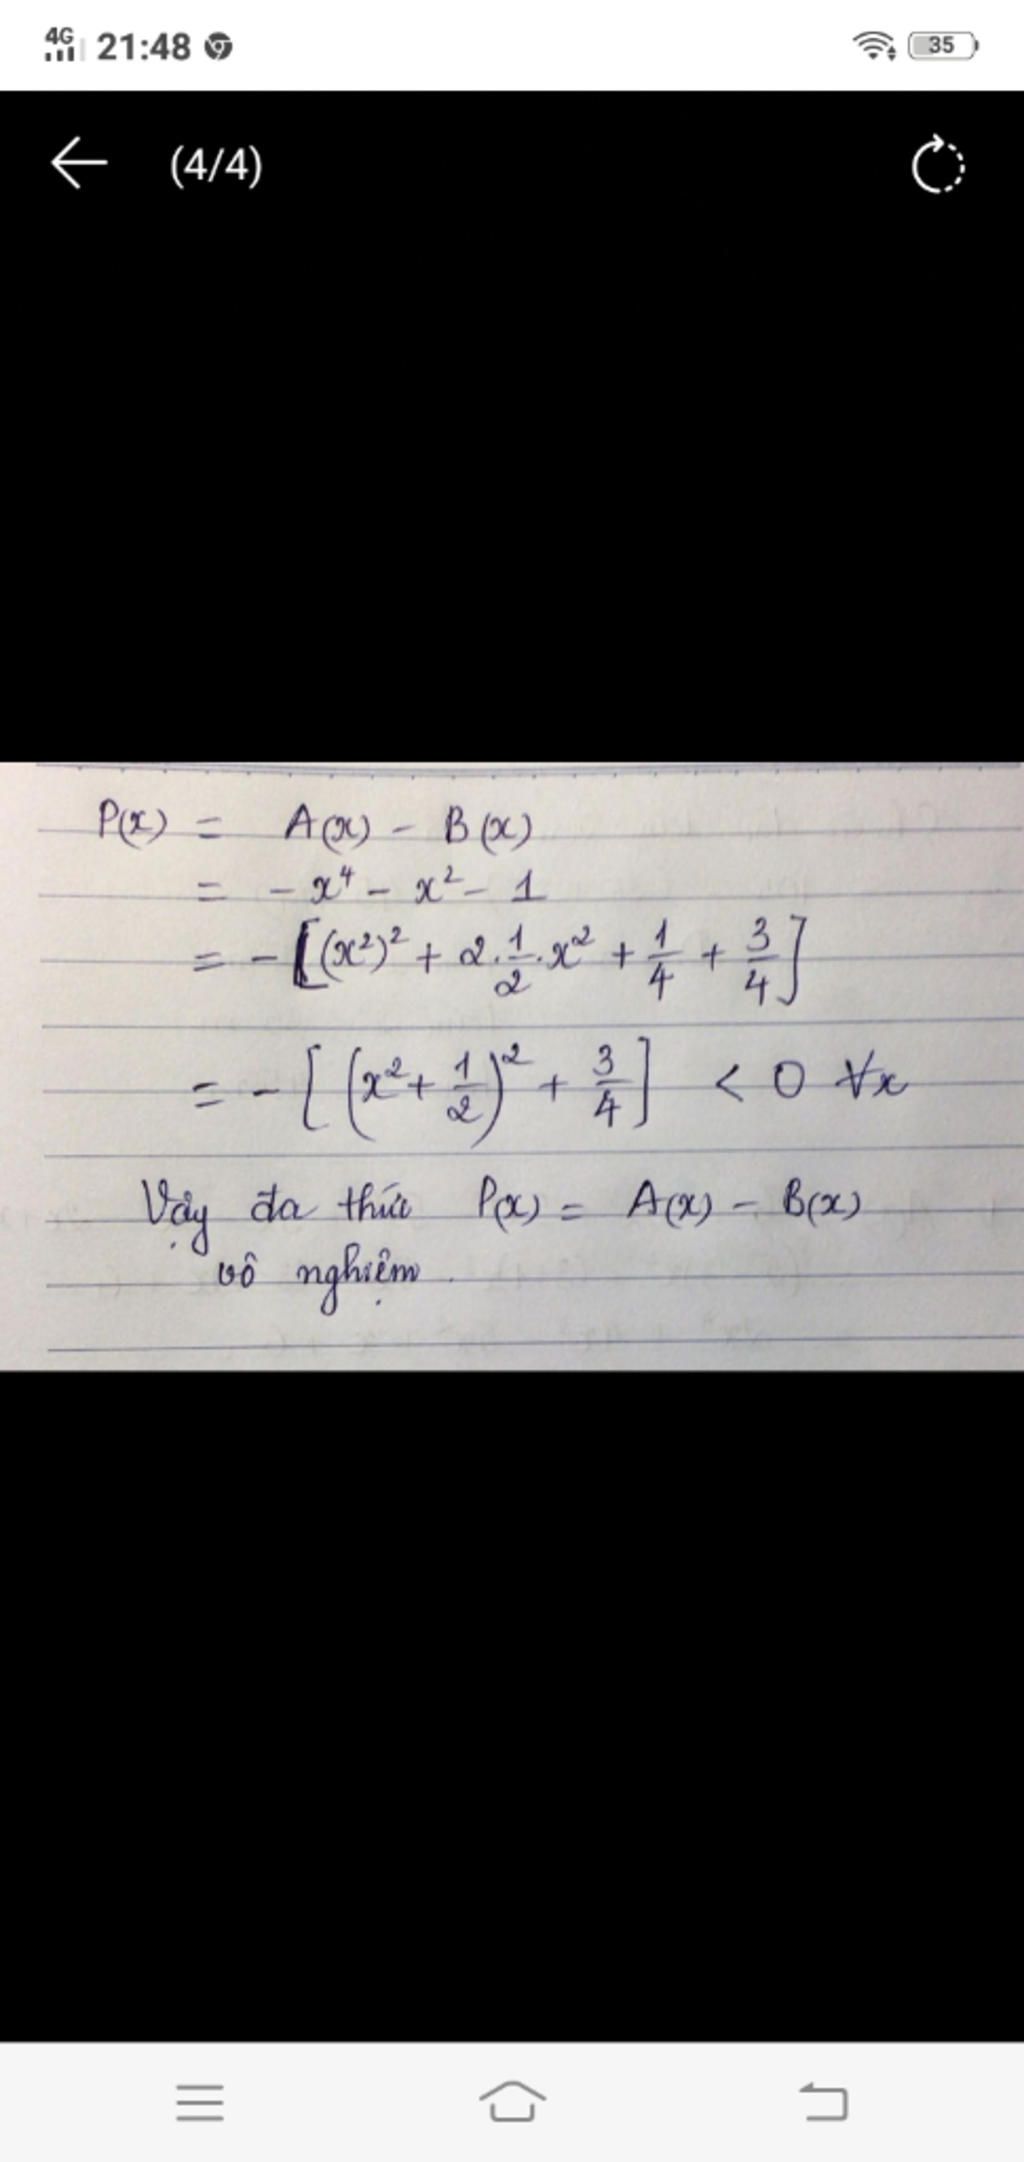 4G 21:48 35
(4/4)
P(x) = A(x) - B(x)
= - x⁴ - x² - 1
= - [(x²)² + 2.1/2.x² + 1/4 + 3/4]
= - [(x² + 1/2)² + 3/4] < 0 ∀x
Vậy đa thức P(x) = A(x) - B(x)
vô nghiệm.